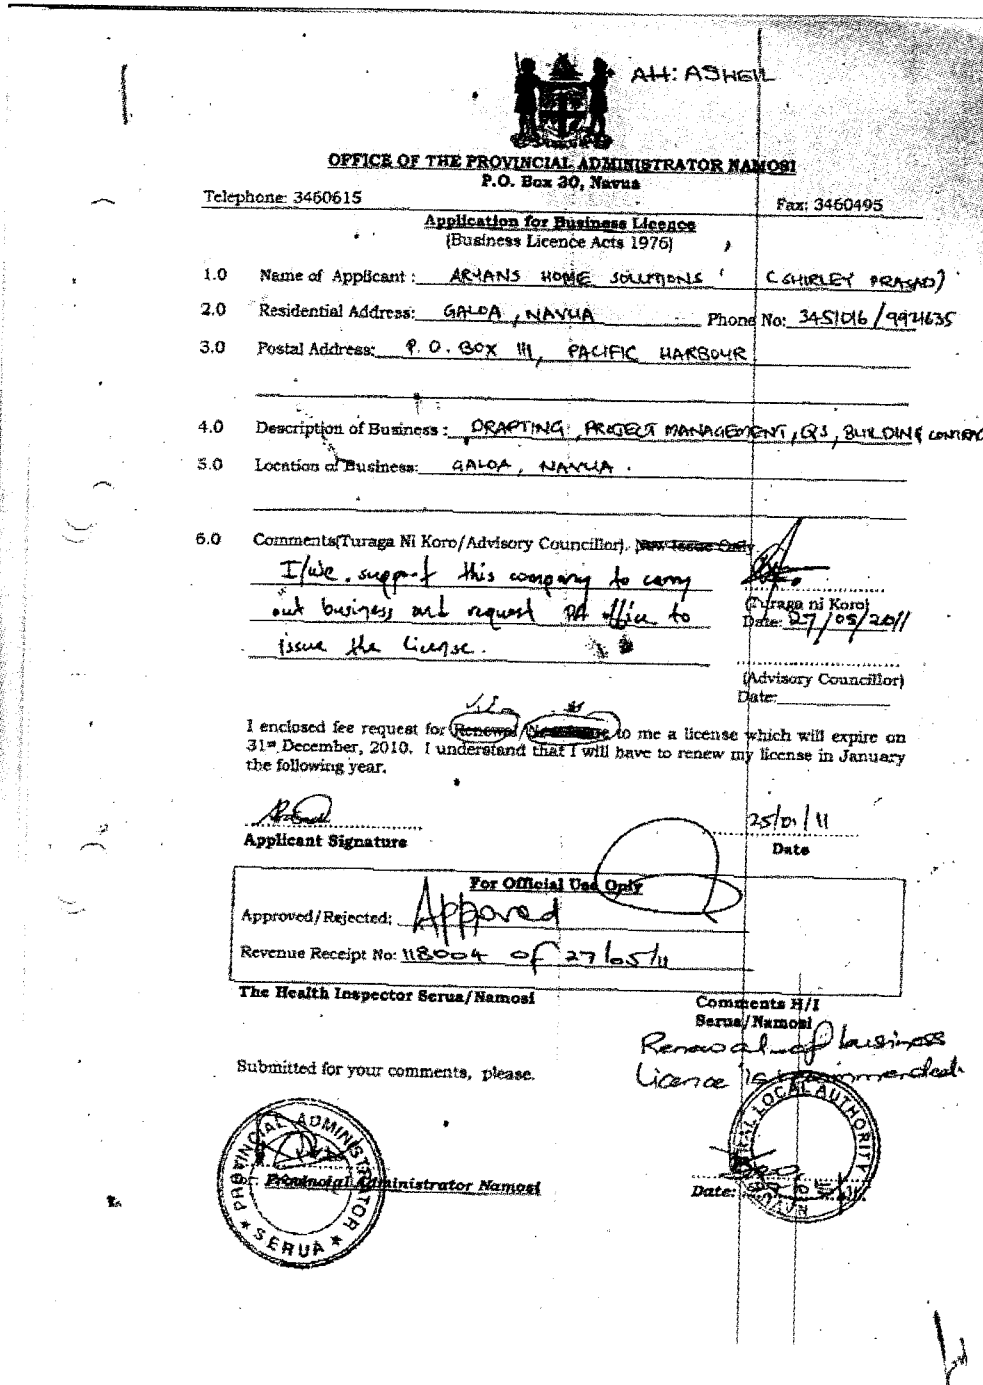 Att: ASHEIL
OFFICE OF THE PROVINCIAL ADMINISTRATOR NAMOSI
P.O. Box 30, Navua
Telephone: 3460615 Fax: 3460495
Application for Business Licence
(Business Licence Acts 1976)
1.0 Name of Applicant : ARYANS HOME SOLUTIONS (SHIRLEY PRASAD)
2.0 Residential Address: GALOA, NAVUA Phone No: 3451016/9921635
3.0 Postal Address: P.O. BOX 111, PACIFIC HARBOUR
4.0 Description of Business : DRAFTING, PROJECT MANAGEMENT, QS, BUILDING CONTRAC
5.0 Location of Business: GALOA, NAVUA.
6.0 Comments(Turaga Ni Koro/Advisory Councillor). New Issue Only
I/we support this company to carry
out business and request PA office to
issue the license.
(Turaga ni Koro)
Date: 27/05/2011
(Advisory Councillor)
Date:
I enclosed fee request for Renewal/ to me a license which will expire on
31st December, 2010. I understand that I will have to renew my license in January
the following year.
Applicant Signature
25/01/11
Date
For Official Use Only
Approved/Rejected: Approved
Revenue Receipt No: 118004 of 27/05/11
The Health Inspector Serua/Namosi
Comments H/I
Serua/Namosi
Renewal of business
Licence is recommended.
Submitted for your comments, please.
PROVINCIAL ADMINISTRATOR
SERUA
Provincial Administrator Namosi
RURAL LOCAL AUTHORITY
NAVUA
Date: